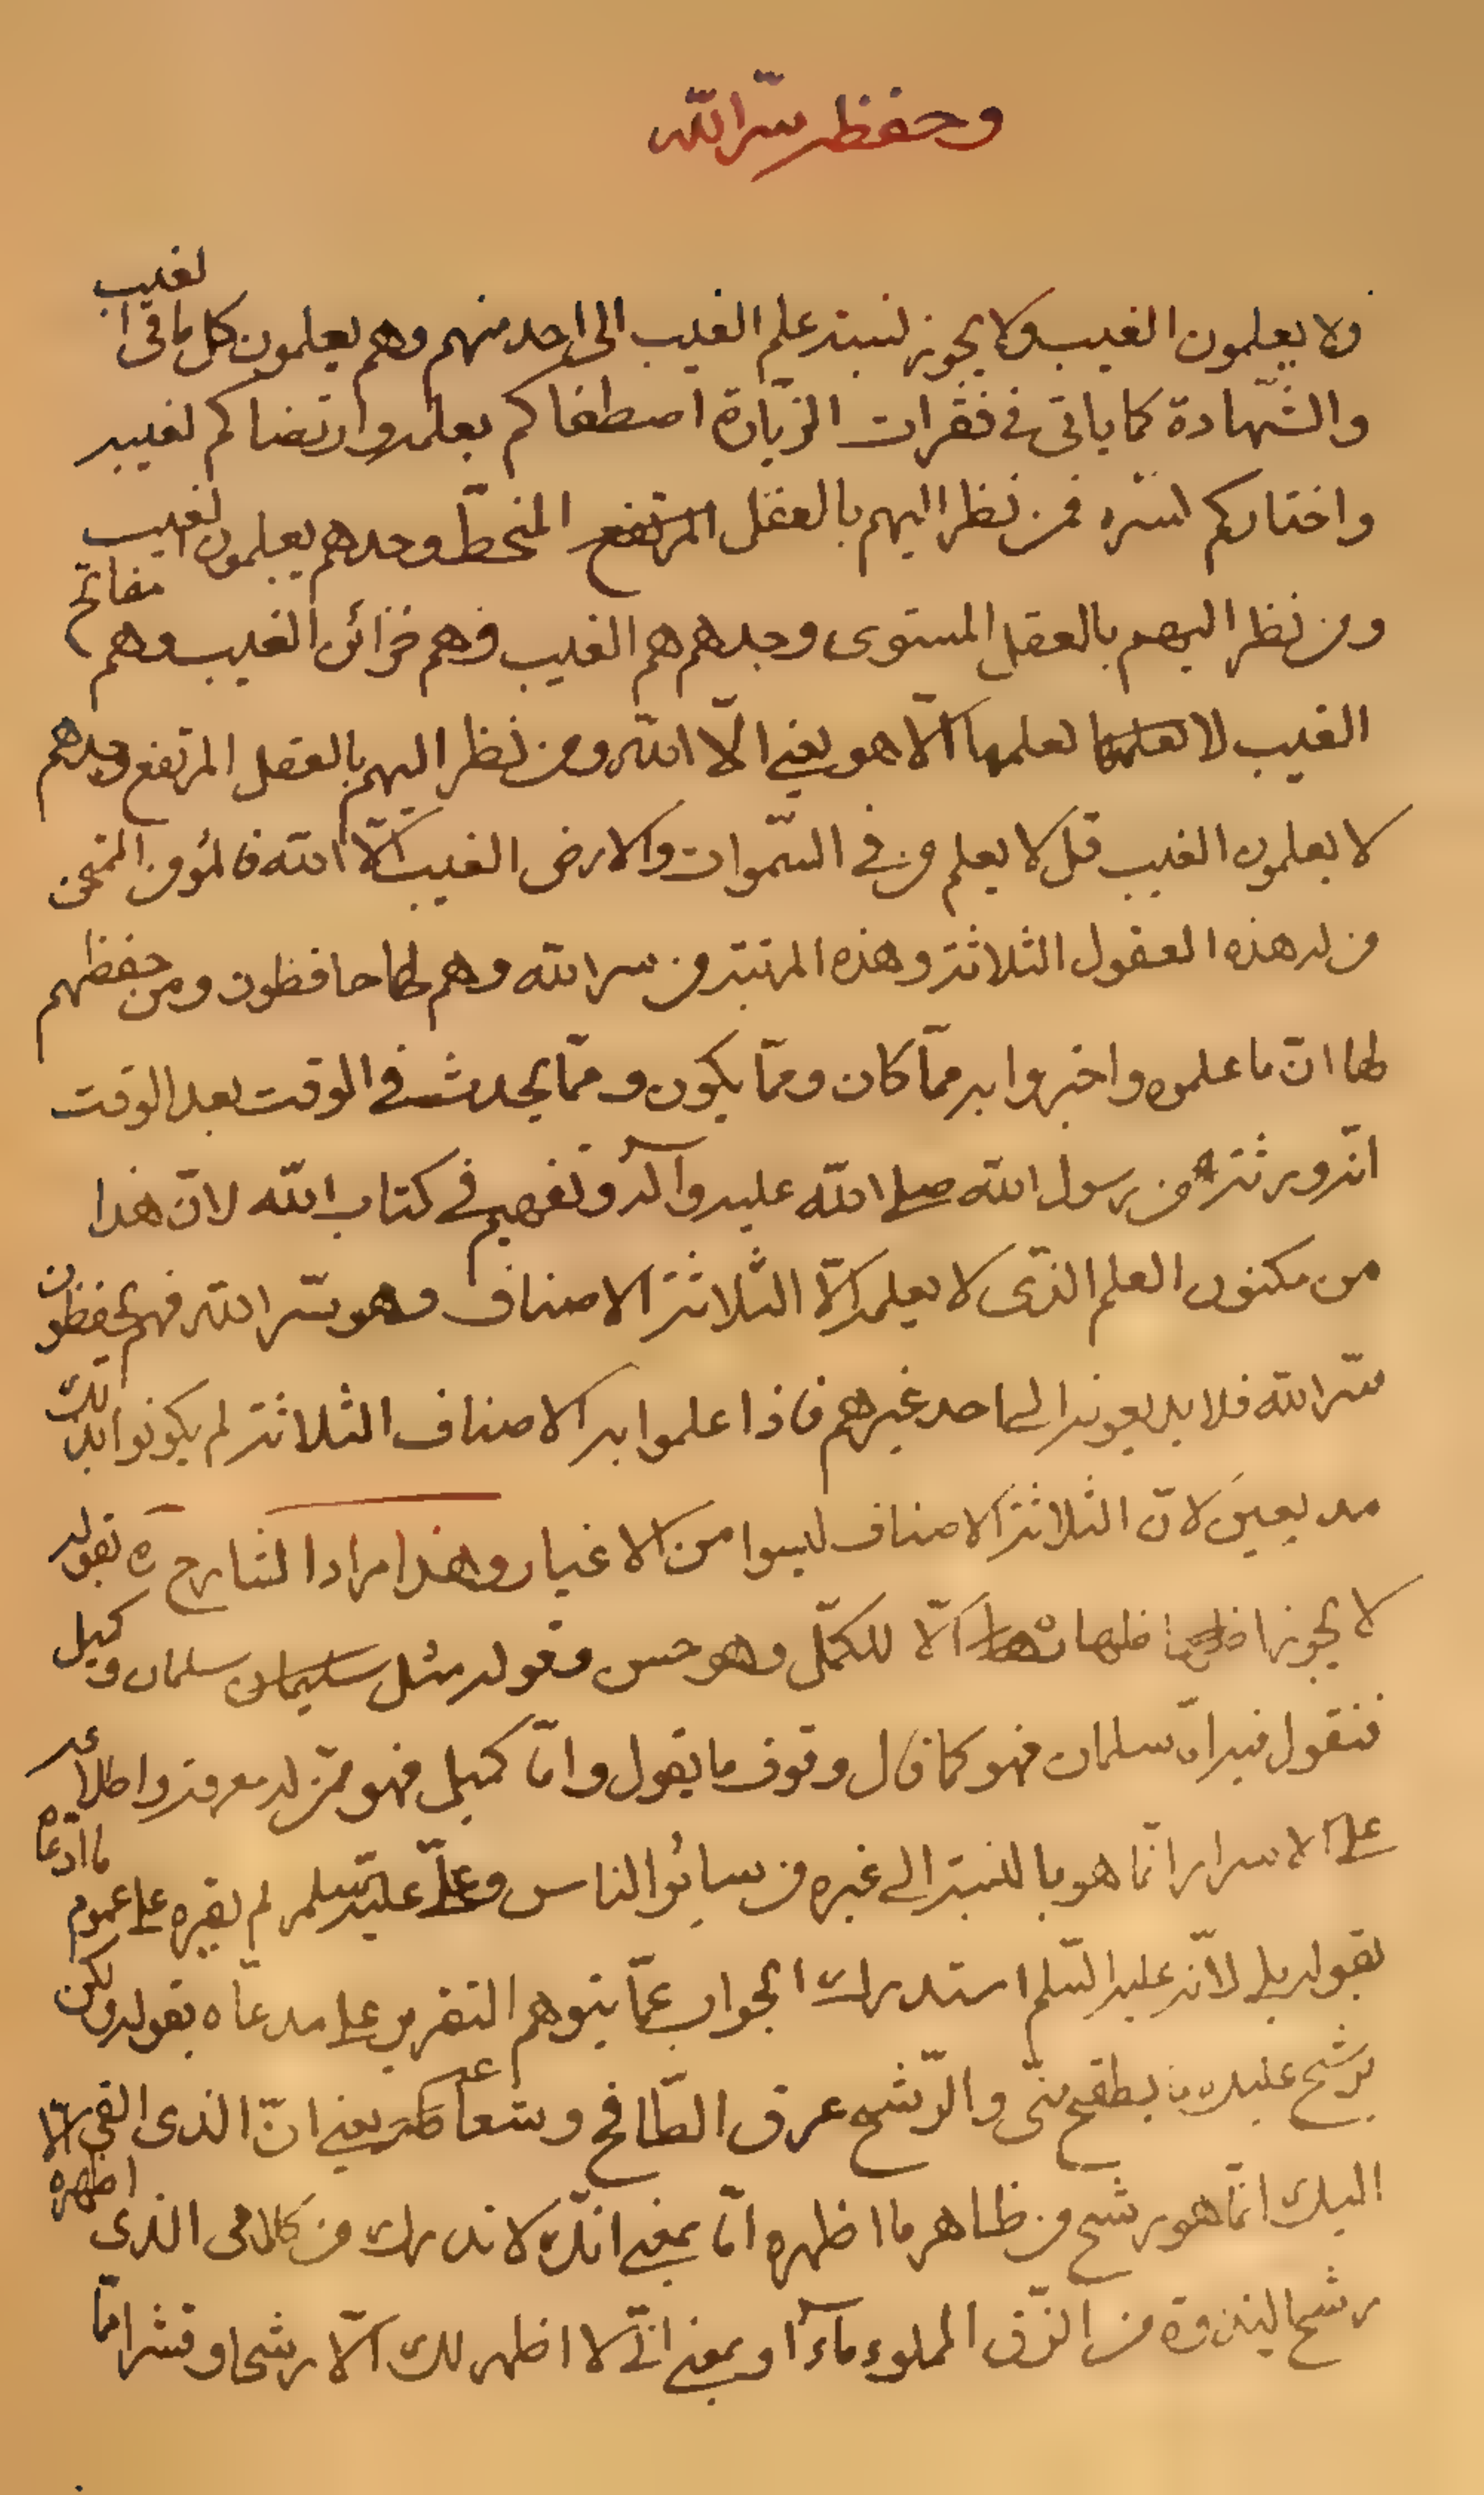 وحفظ سرّ الله
ولا يعلمون الغيب ولا يجوز نسبة علم الغيب الى احد منهم وهم يعلمون كل ما فى الغيب
والشّهادة كما ياتى فى فقرات الزّيارة اصطفاكم بعلمه وارتضاكم لغيبه
واختاركم لسّره فمن نظر اليهم بالعقل المرتفع المنحطّ وجدهم يعلمون الغيب
ومن نظر اليهم بالعقل المستوى وجدهم هم الغيب وهم خزائن الغيب وهم مفاتح
الغيب لا يعلمها يعلمها الّا هو يعنى الّا الله ومن نظر اليهم بالعقل المرتفع وجدهم
لا يعلمون الغيب قل لا يعلم من فى السّموات والارض الغيب الّا الله فالمؤمن الممتحن
من له هذه العقول الثلاثة وهذه المرتبة من سر الله وهم لها حافظون ومن حفظهم
لها انّ ما علموه واخبروا به ممّا كان وممّا يكون وممّا يحدث فى الوقت بعد الوقت
انّه وراثة من رسول الله صلى الله عليه وآله وتفهيم فى كتاب الله لانّ هذا
من مكنون العلم الذّى لا يعلمه الّا الثلاثة الاصناف وهو سّر الله فهم يحفظون
سّر الله فلا يديعونه الى احد غيرهم فاذا علموا به الاصناف الثلاثة لم يكونوا بذلك
مديعين لانّ الثلاثة الاصناف ليسوا من الاغيار وهذا مراد الشارح ره بقوله
لا يجوز اظهارها الّا للكمّل وهو حسن وقوله مثل سليمان سلمان وكميل
فنقول فيه امّا سلمان فهو كما قال وفوق ما يقول وامّا كميل فهو ممّن له معرفة واطلاعه
على الاسرار انّما هو بالنسبة الى غيره من سائر الناس وعلىّ عليه السّلم لم يقره على عموم ما ادّعاه
بقوله بلى لانّه عليه السّلم استدرك الجواب عمّا يتوهم التقرير على مدعاه بقوله ولكن
يرشح عليك ما يطفح منّى والرّشح عرق الطّافح وشعاعه يعنى انّ الذى القى
اليك انّما هو رشح من ظاهر ما اظهره امّا بمعنى انّك لا تدرك من كلامى الذى اظهره الّا
رشحا لينداوة من الزّق المملوء مآءً او بمعنى انّى لا اظهر لك الّا رشحا وقشرا امّا